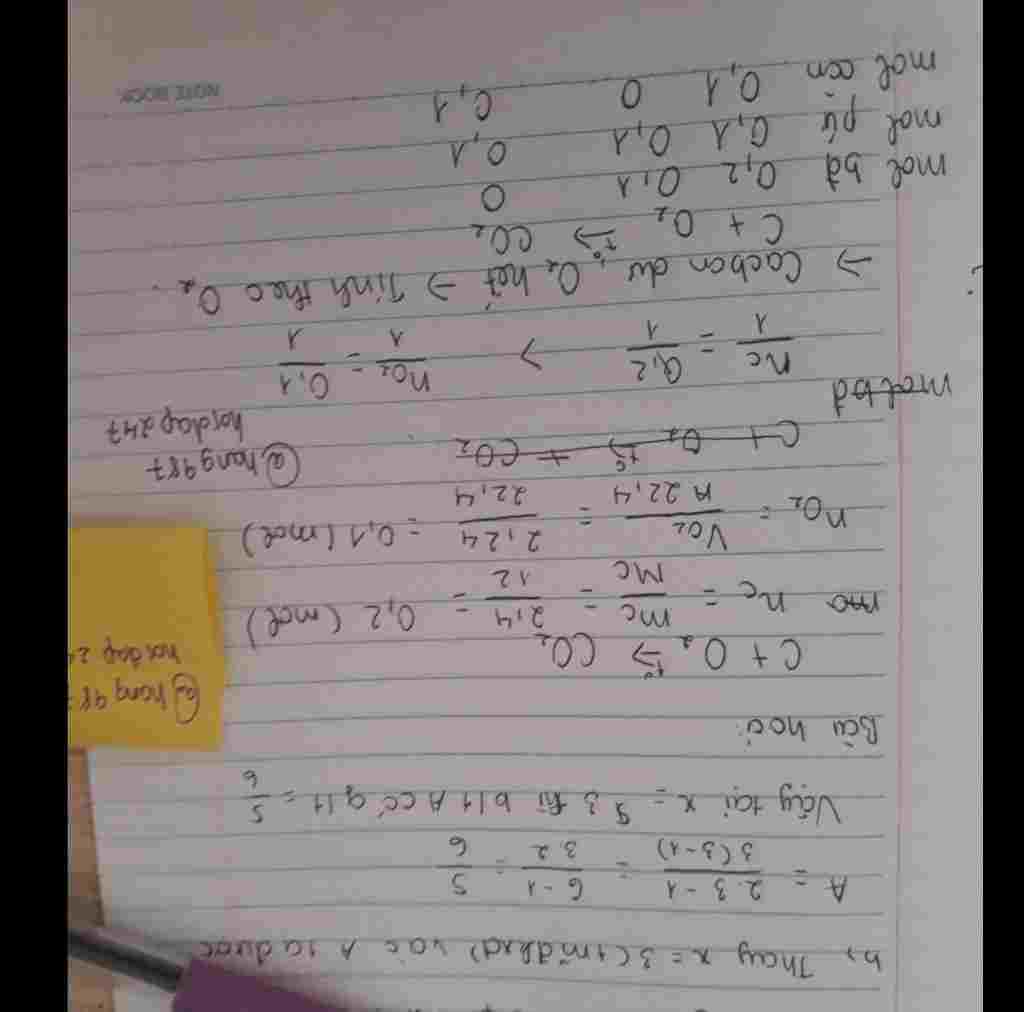 b, Thay x = 3 (tmđkxđ) vào A ta được
A = \frac{2.3 - 1}{3(3-1)} = \frac{6-1}{3.2} = \frac{5}{6}
Vậy tại x = 3 thì bt A có gtt = \frac{5}{6}
Bài hoá:
C + O₂ \xrightarrow{t°} CO₂
n_C = \frac{m_C}{M_C} = \frac{2,4}{12} = 0,2 (mol)
n_{O₂} = \frac{V_{O₂}}{22,4} = \frac{2,24}{22,4} = 0,1 (mol)
C + O₂ \xrightarrow{t°} + CO₂
@hang987
hoidap247
mol bđ
\frac{n_C}{1} = \frac{0,2}{1} > \frac{n_{O₂}}{1} = \frac{0,1}{1}
→ Cacbon dư, O₂ hết → Tính theo O₂.
C + O₂ \xrightarrow{t°} CO₂
mol bđ 0,2 0,1 0
mol pứ 0,1 0,1 0,1
mol còn 0,1 0 0,1
NOTE BOOK
@hang 98
hoidap 24